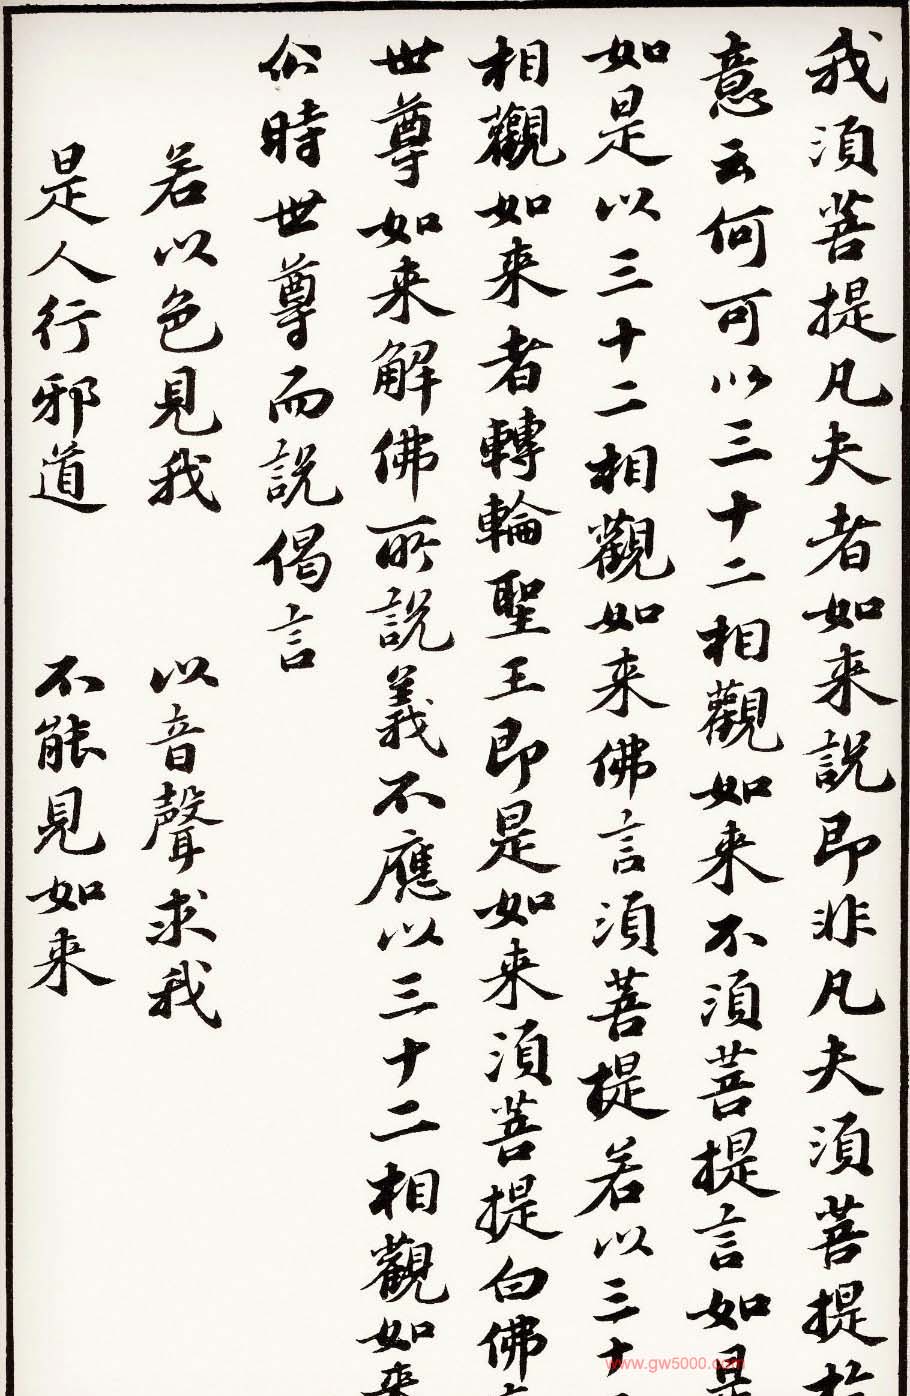 我須菩提凡夫者如来說即非凡夫須菩提於
意云何可以三十二相觀如来不須菩提言如是
如是以三十二相觀如来佛言須菩提若以三十
相觀如来者轉輪聖王即是如来須菩提白佛
世尊如来解佛所說義不應以三十二相觀如来
尒時世尊而說偈言
若以色見我 以音聲求我
是人行邪道 不能見如来
www.gw5000.com